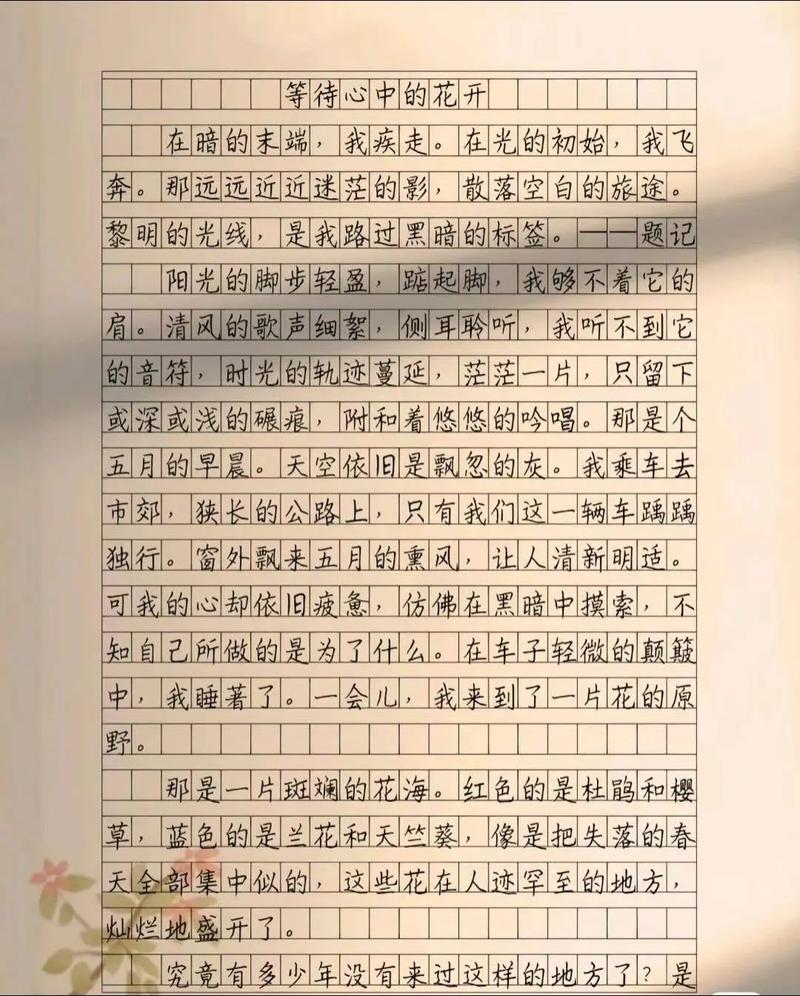 等待心中的花开
在暗的末端，我疾走。在光的初始，我飞
奔。那远远近近迷茫的影，散落空白的旅途。
黎明的光线，是我路过黑暗的标签。——题记
阳光的脚步轻盈，踮起脚，我够不着它的
肩。清风的歌声细絮，侧耳聆听，我听不到它
的音符，时光的轨迹蔓延，茫茫一片，只留下
或深或浅的碾痕，附和着悠悠的吟唱。那是个
五月的早晨。天空依旧是飘忽的灰。我乘车去
市郊，狭长的公路上，只有我们这一辆车踽踽
独行。窗外飘来五月的熏风，让人清新明适。
可我的心却依旧疲惫，仿佛在黑暗中摸索，不
知自己所做的是为了什么。在车子轻微的颠簸
中，我睡著了。一会儿，我来到了一片花的原
野。
那是一片斑斓的花海。红色的是杜鹃和樱
草，蓝色的是兰花和天竺葵，像是把失落的春
天全部集中似的，这些花在人迹罕至的地方，
灿烂地盛开了。
究竟有多少年没有来过这样的地方了？是